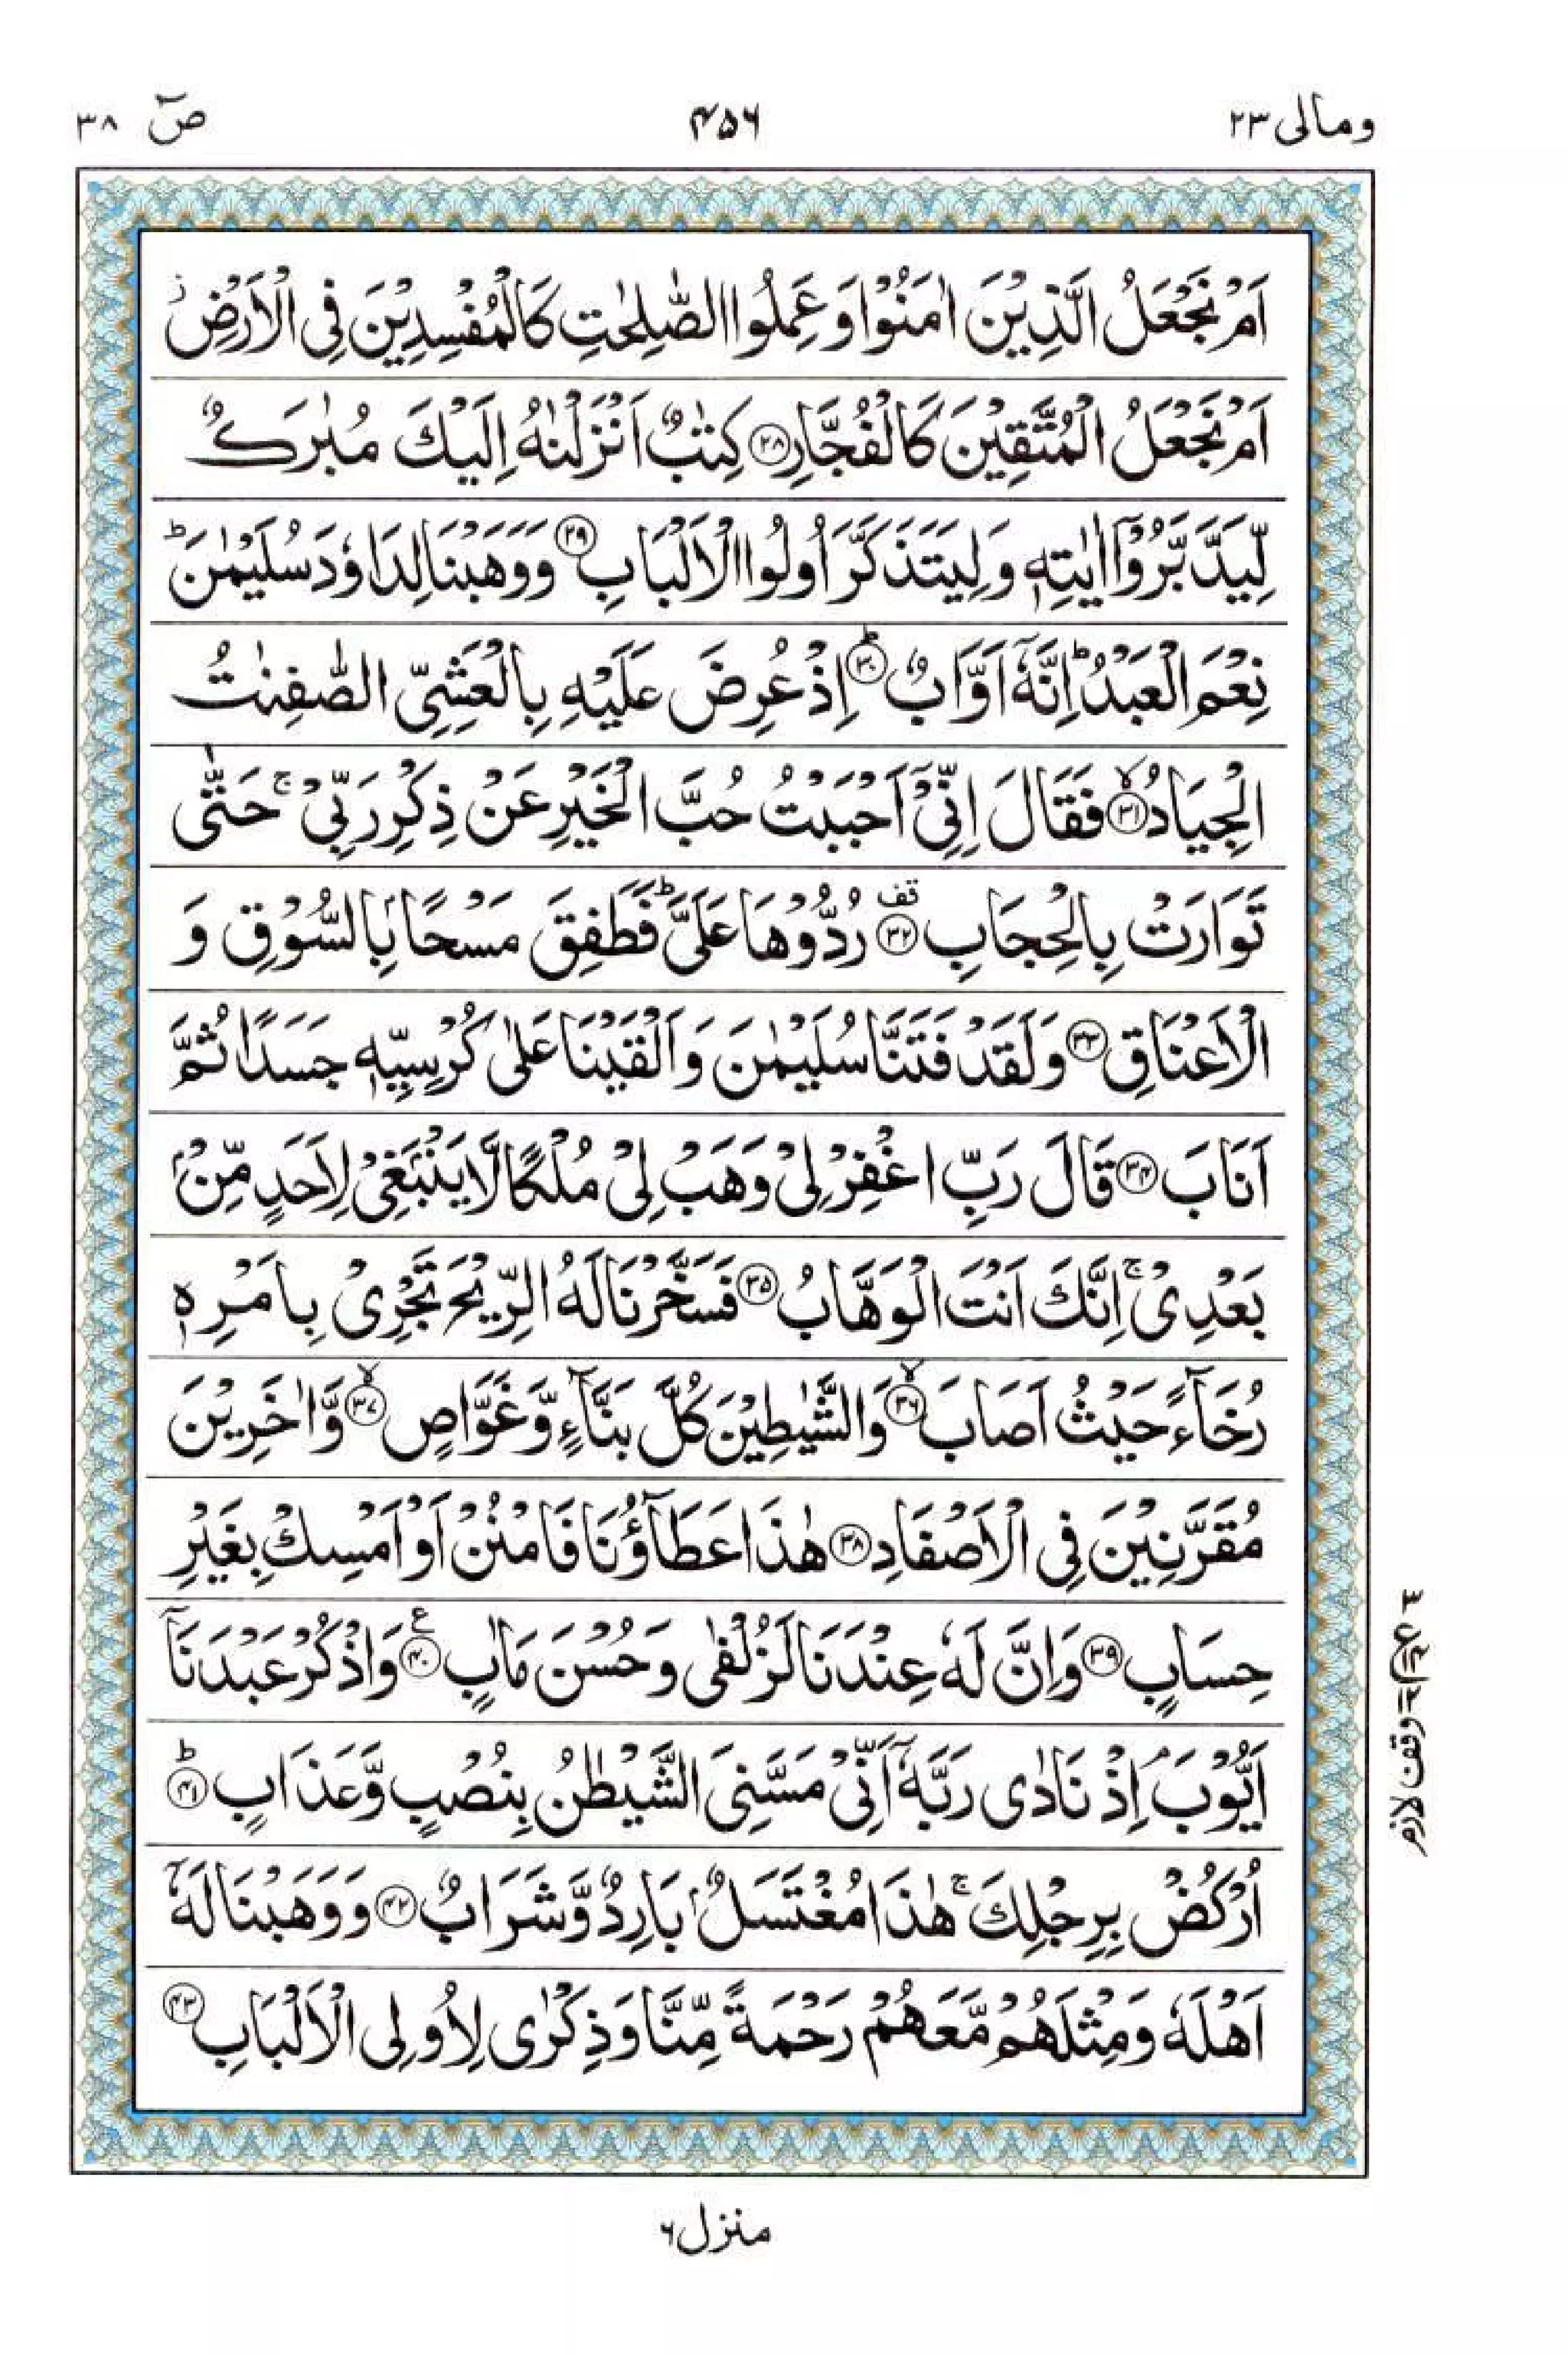 ومالی ۲۳
۴۵۶
صٓ ۳۸
اَمْ نَجْعَلُ الَّذِيْنَ اٰمَنُوْا وَ عَمِلُوا الصّٰلِحٰتِ كَالْمُفْسِدِيْنَ فِى الْاَرْضِ ز
اَمْ نَجْعَلُ الْمُتَّقِيْنَ كَالْفُجَّارِ ۲۸ كِتٰبٌ اَنْزَلْنٰهُ اِلَيْكَ مُبٰرَكٌ
لِّيَدَّبَّرُوْۤا اٰيٰتِهٖ وَ لِيَتَذَكَّرَ اُولُوا الْاَلْبَابِ ۲۹ وَوَهَبْنَا لِدَاوٗدَ سُلَيْمٰنَ ؕ
نِعْمَ الْعَبْدُ ؕ اِنَّهٗۤ اَوَّابٌ ؕ ۳۰ اِذْ عُرِضَ عَلَيْهِ بِالْعَشِىِّ الصّٰفِنٰتُ
الْجِيَادُ ۙ ۳۱ فَقَالَ اِنِّىْۤ اَحْبَبْتُ حُبَّ الْخَيْرِ عَنْ ذِكْرِ رَبِّىْ ۚ حَتّٰى
تَوَارَتْ بِالْحِجَابِ قف ۳۲ رُدُّوْهَا عَلَىَّ ؕ فَطَفِقَ مَسْحًۢا بِالسُّوْقِ وَ
الْاَعْنَاقِ ۳۳ وَلَقَدْ فَتَنَّا سُلَيْمٰنَ وَاَلْقَيْنَا عَلٰى كُرْسِيِّهٖ جَسَدًا ثُمَّ
اَنَابَ ۳۴ قَالَ رَبِّ اغْفِرْ لِىْ وَهَبْ لِىْ مُلْكًا لَّا يَنْۢبَغِىْ لِاَحَدٍ مِّنْۢ
بَعْدِىْ ۚ اِنَّكَ اَنْتَ الْوَهَّابُ ۳۵ فَسَخَّرْنَا لَهُ الرِّيْحَ تَجْرِىْ بِاَمْرِهٖ
رُخَآءً حَيْثُ اَصَابَ ۙ ۳۶ وَالشَّيٰطِيْنَ كُلَّ بَنَّآءٍ وَّغَوَّاصٍ ۙ ۳۷ وَّاٰخَرِيْنَ
مُقَرَّنِيْنَ فِى الْاَصْفَادِ ۳۸ هٰذَا عَطَآؤُنَا فَامْنُنْ اَوْ اَمْسِكْ بِغَيْرِ
حِسَابٍ ۳۹ وَاِنَّ لَهٗ عِنْدَنَا لَزُلْفٰى وَحُسْنَ مَاٰبٍ ع ۴۰ وَاذْكُرْ عَبْدَنَاۤ
اَيُّوْبَ ۘ اِذْ نَادٰى رَبَّهٗۤ اَنِّىْ مَسَّنِىَ الشَّيْطٰنُ بِنُصْبٍ وَّعَذَابٍ ؕ ۴۱
اُرْكُضْ بِرِجْلِكَ ۚ هٰذَا مُغْتَسَلٌۢ بَارِدٌ وَّشَرَابٌ ۴۲ وَوَهَبْنَا لَهٗۤ
اَهْلَهٗ وَمِثْلَهُمْ مَّعَهُمْ رَحْمَةً مِّنَّا وَذِكْرٰى لِاُولِى الْاَلْبَابِ ۴۳
وقف لازم
منزل ۶